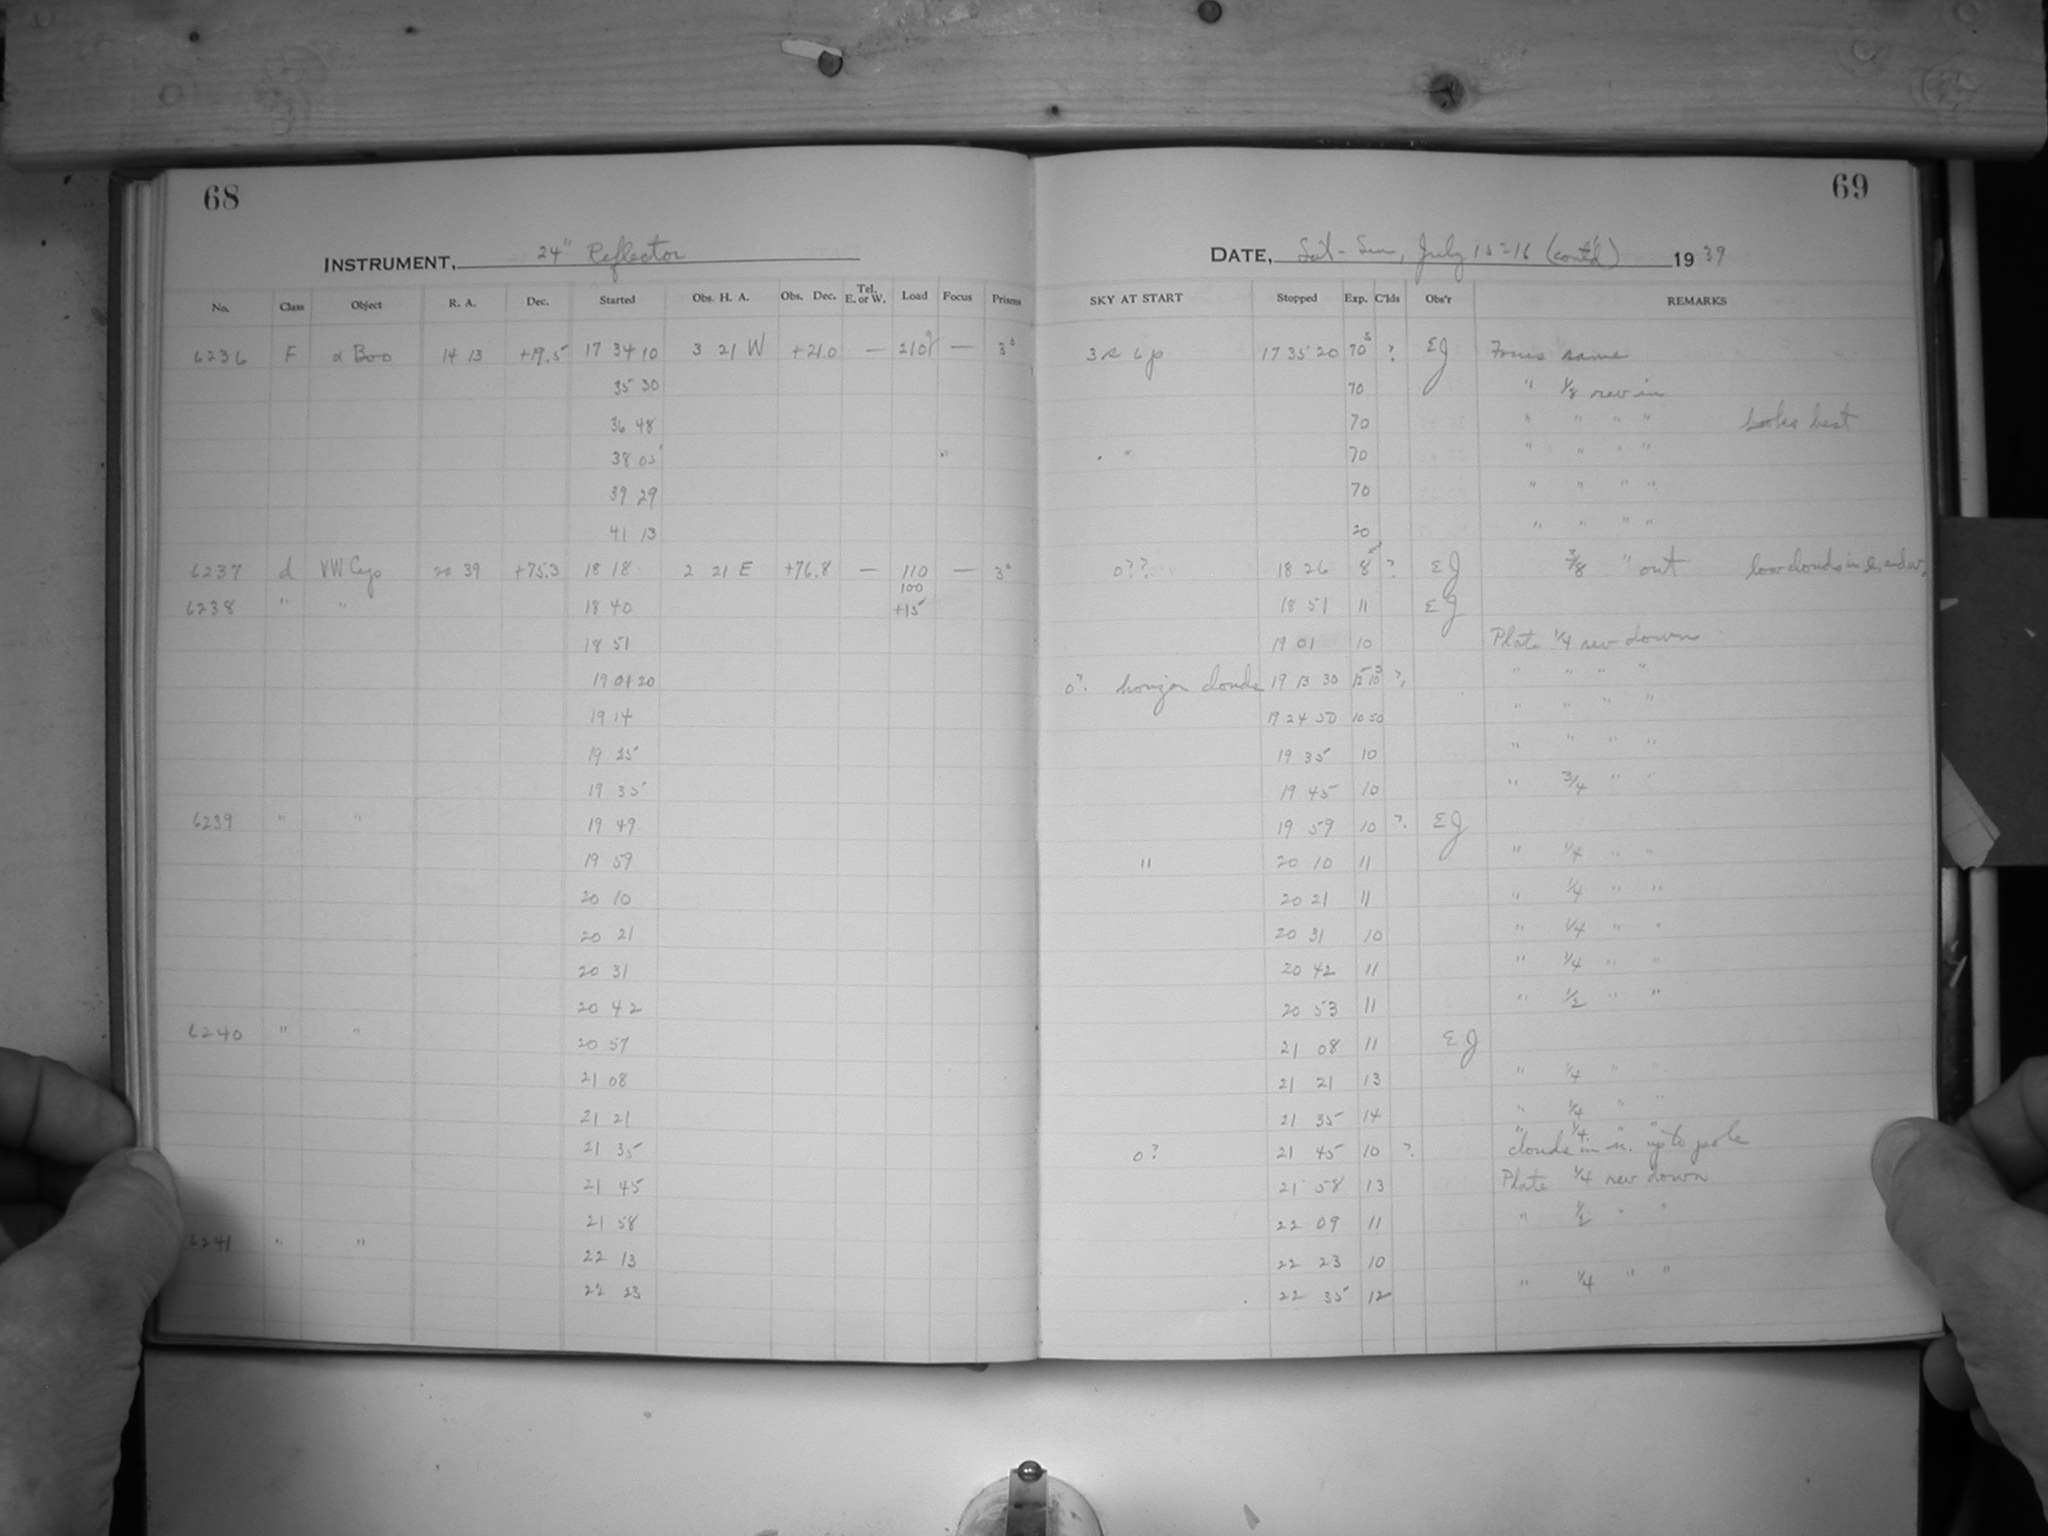 68
INSTRUMENT, 24" Reflector
No. Class Object R. A. Dec. Started Obs. H. A. Obs. Dec. Tel. E. or W. Load Focus Prisms
6236 F α Boo 14 13 +19.5 17 34 10 3 21 W +21.0 — 210 — 3°
35 30
36 48
38 05
39 29
41 13
6237 d VW Cep 20 39 +75.3 18 18 2 21 E +76.8 — 110 — 3°
100
6238 " " 18 40 +15
18 51
19 01 20
19 14
19 25
19 35
6239 " " 19 49
19 59
20 10
20 21
20 31
20 42
6240 " " 20 57
21 08
21 21
21 35
21 45
21 58
6241 " " 22 13
22 23
69
DATE, Sat - Sun, July 15-16 (cont'd) 1939
SKY AT START Stopped Exp. C'lds Obs'r REMARKS
17 35 20 70s ? EJ Focus same
70 " 1/8 rev in
70 " " " " looks best
" 70 " " " "
70 " " " "
20 " " " "
0?? 18 26 8 ? EJ 3/8 " out low clouds in e. and w.
18 51 11 EJ
19 01 10 Plate 1/4 rev down
0? horizon clouds 19 13 30 12 10 ? " " " "
19 24 50 10 50 " " " "
19 35 10 " " " "
19 45 10 " 3/4 " "
19 59 10 ? EJ
" 20 10 11 " 1/4 " "
20 21 11 " 1/4 " "
20 31 10 " 1/4 " "
20 42 11 " 1/4 " "
20 53 11 " 1/2 " "
21 08 11 EJ
21 21 13 " 1/4 " "
21 35 14 " 1/4 " "
" 1/4 " "
0? 21 45 10 ? clouds in n. up to pole
21 58 13 Plate 1/4 rev down
22 09 11 " 1/2 " "
22 23 10
22 35 12 " 1/4 " "